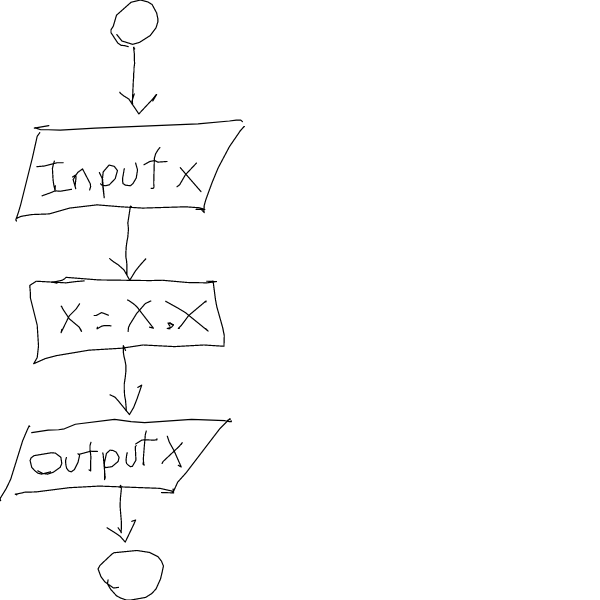 Input x
X = X . X
output x